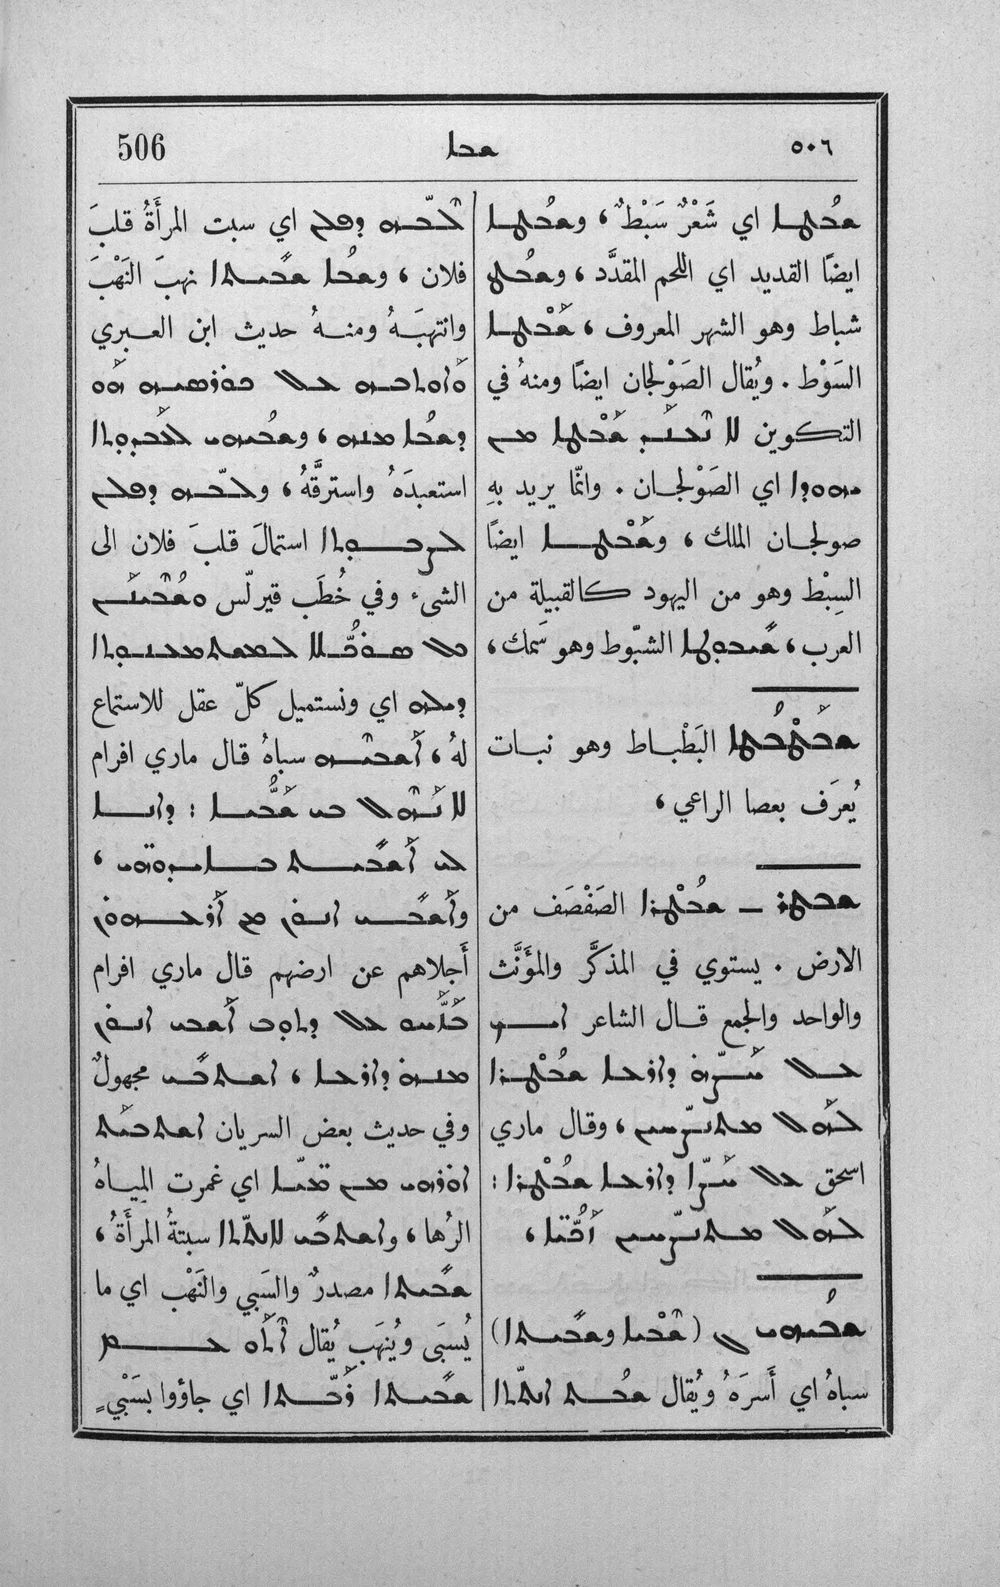 506 ܫܒܐ ٥٠٦
ܫܒܛܐ اي شَعْرٌ سَبْطٌ ، ܘܫܒܛܐ
ايضًا القديد اي اللحم المقدَّد ، ܘܫܒܛ
شباط وهو الشهر المعروف ، ܫܒܛܐ
السَوْط . ويُقال الصَوْلجان ايضًا ومنهُ في
التكوين ܠܐ ܢܥܢܕ ܫܒܛܐ ܡܢ
ܝܗܘܕܐ اي الصَوْلجان . وانّما يريد بهِ
صولجان الملك ، ܘܫܒܛܐ ايضًا
السِبْط وهو من اليهود كالقبيلة من
العرب ، ܫܝܒܘܛܐ الشبّوط وهو سَمك ،
ܫܒܛܒܛܐ البَطْباط وهو نبات
يُعرَف بعصا الراعي ،
ܫܒܛܪ ــ ܫܒܛܪܐ الصَفْصَف من
الارض . يستوي في المذكَّر والمؤَنَّث
والواحد والجمع قال الشاعر ܐܝܟ
ܥܠ ܚܨܗ ܕܐܪܥܐ ܫܒܛܪܐ
ܠܗܘܠ ܡܬܢܨܚܝܢ ، وقال ماري
اسحق ܥܠ ܚܨܐ ܕܐܪܥܐ ܫܒܛܪܐ :
ܠܗܘܠ ܡܬܢܨܚܝܢ ،
ܫܒܝܗܝ (ܫܒܝܐ ܘܫܒܝܬܐ)
سباهُ اي أَسرَهُ ويُقال ܫܒܬ ܐܢܬܬܐ
ܠܒܗ ܕܦܠܢ اي سبت المرأَةُ قلبَ
فلان ، ܘܫܒܐ ܫܒܝܬܐ نهبَ النَهْبَ
وانتهبَهُ ومنهُ حديث ابن العبري
ܥܠ ܗܘ
ܕܫܒܐ ܡܢܗ ، ܘܫܒܝܗܝ ܠܥܒܕܘܬܐ
استعبدَهُ واسترقَّهُ ، ܘܠܒܗ ܕܦܠܢ
ܠܨܒܘܬܐ استمالَ قلبَ فلان الى
الشيء وفي خُطَب قيرلّس ܘܫܒܝܢܢ
ܟܠ ܣܘܟܠܐ ܠܡܫܬܡܥܢܘܬܐ
ܕܝܠܗ اي ونستميل كلّ عقل للاستماع
لهُ ، ܐܫܒܝܗ سباهُ قال ماري افرام
ܠܐ ܢܗܘܠ ܒܝ ܫܒܝܐ : ܕܐܢܐ
ܠܝ ܐܫܒܝܬ ܒܐܝܕܘܗܝ ،
ܘܐܫܒܝ ܐܢܘܢ ܡܢ ܐܪܥܗܘܢ
أَجلاهم عن ارضهم قال ماري افرام
ܥܠ ܕܬܘܒ ܐܫܒܝ ܐܢܘܢ
ܡܢܗ ܕܐܪܥܐ ، ܐܫܬܒܝ مجهولٌ
وفي حديث بعض السريان ܐܫܬܒܝܬ
ܐܘܪܗܝ ܡܢ ܡܝܐ اي غمرت المياهُ
الرُها ، ܘܐܫܬܒܝ ܠܐܢܬܬܐ سبتهُ المرأَةُ ،
ܫܒܝܬܐ مصدرٌ والسَبي والنَهْب اي ما
يُسبَى ويُنهَب يُقال ܐܬܘ ܥܡ
ܫܒܝܬܐ ܪܒܬܐ اي جاؤوا بسَبْيٍ